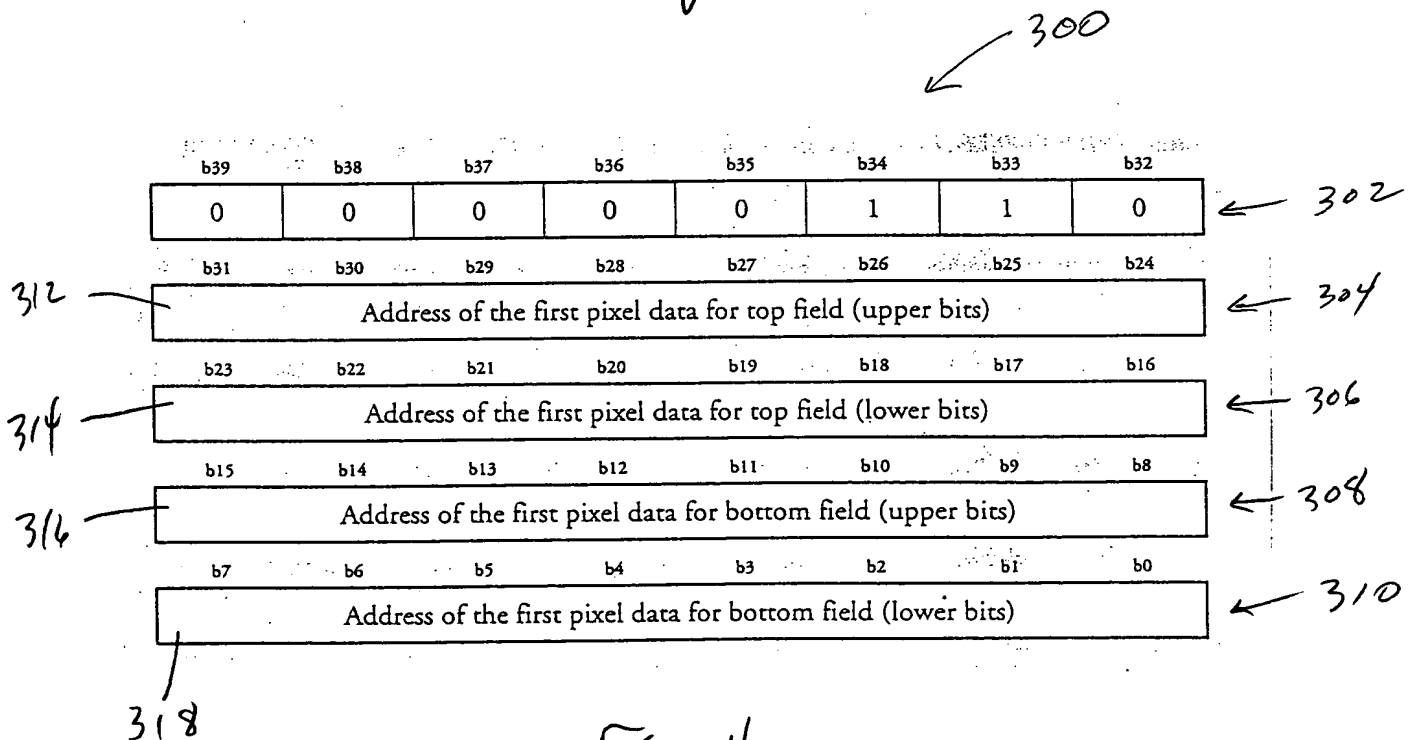 300
b39 b38 b37 b36 b35 b34 b33 b32
0 0 0 0 0 1 1 0 302
b31 b30 b29 b28 b27 b26 b25 b24
312 Address of the first pixel data for top field (upper bits) 304
b23 b22 b21 b20 b19 b18 b17 b16
314 Address of the first pixel data for top field (lower bits) 306
b15 b14 b13 b12 b11 b10 b9 b8
316 Address of the first pixel data for bottom field (upper bits) 308
b7 b6 b5 b4 b3 b2 b1 b0
Address of the first pixel data for bottom field (lower bits) 310
318